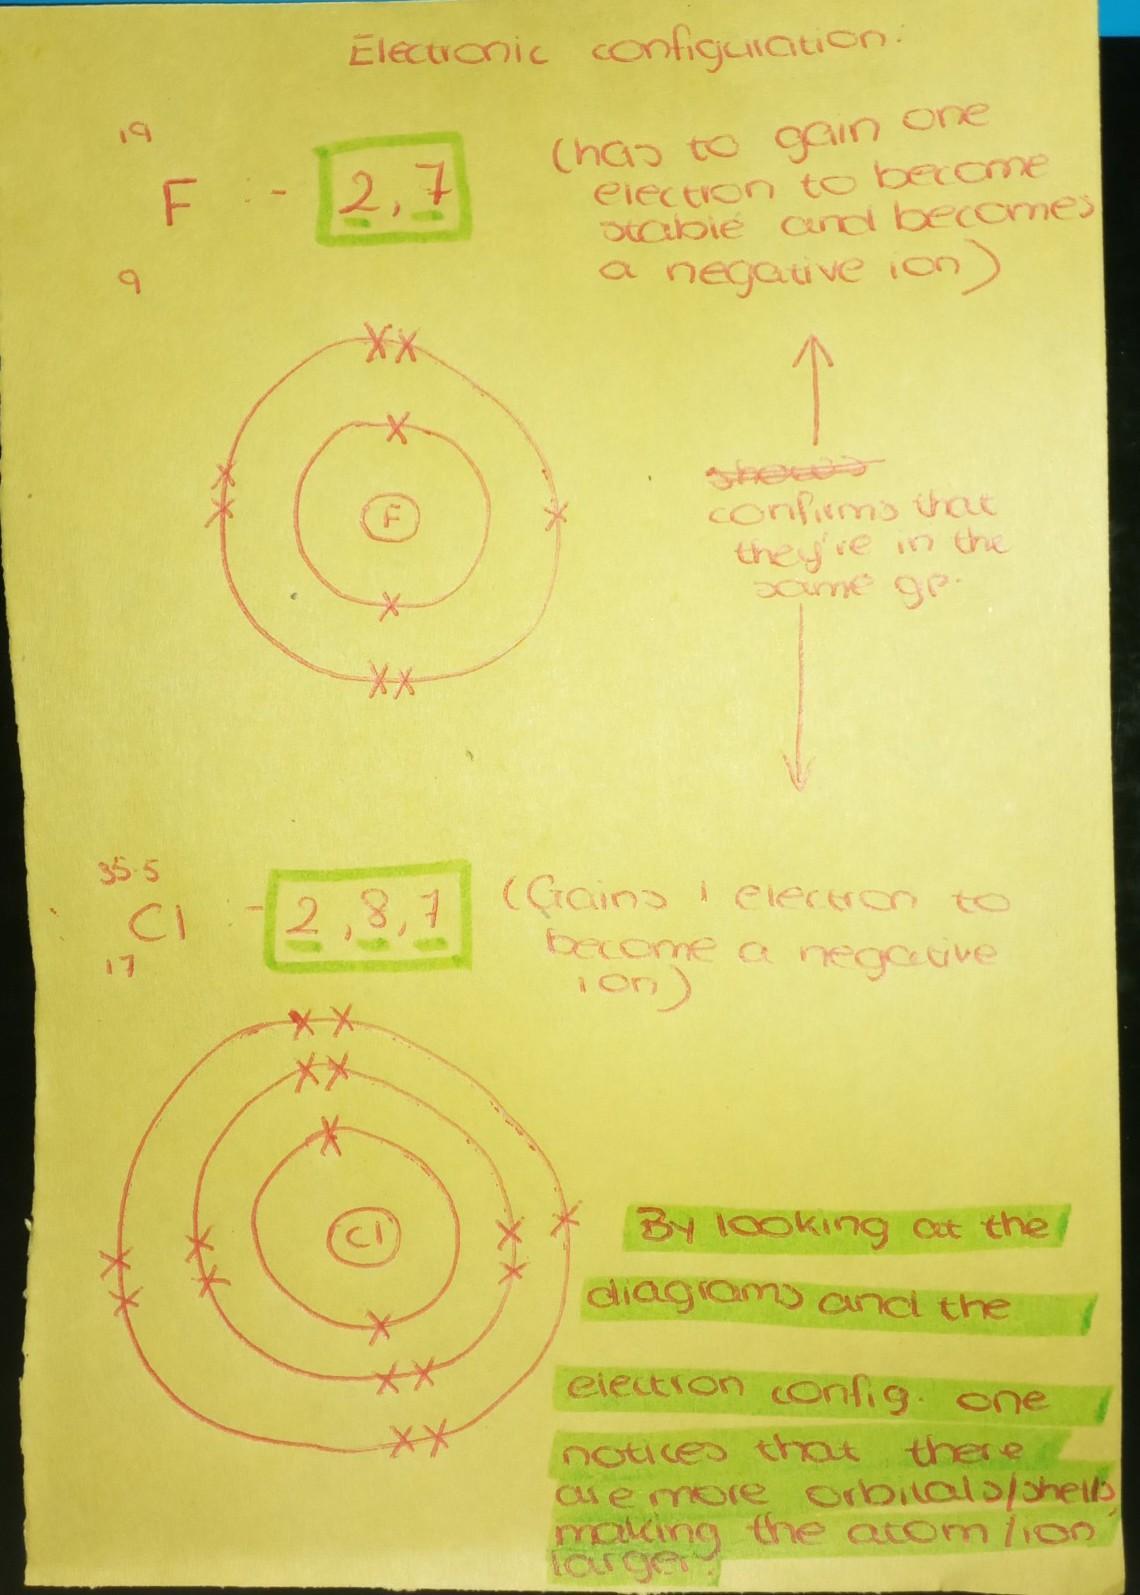 Electronic configuration:
19
F :- 2, 7
9
(has to gain one
electron to become
stable and becomes
a negative ion)
F
shows
confirms that
they're in the
same gp.
35.5
Cl :- 2, 8, 7
17
(Gains 1 electron to
become a negative
ion)
Cl
By looking at the
diagrams and the
electron config. one
notices that there
are more orbitals/shells,
making the atom/ion
larger.